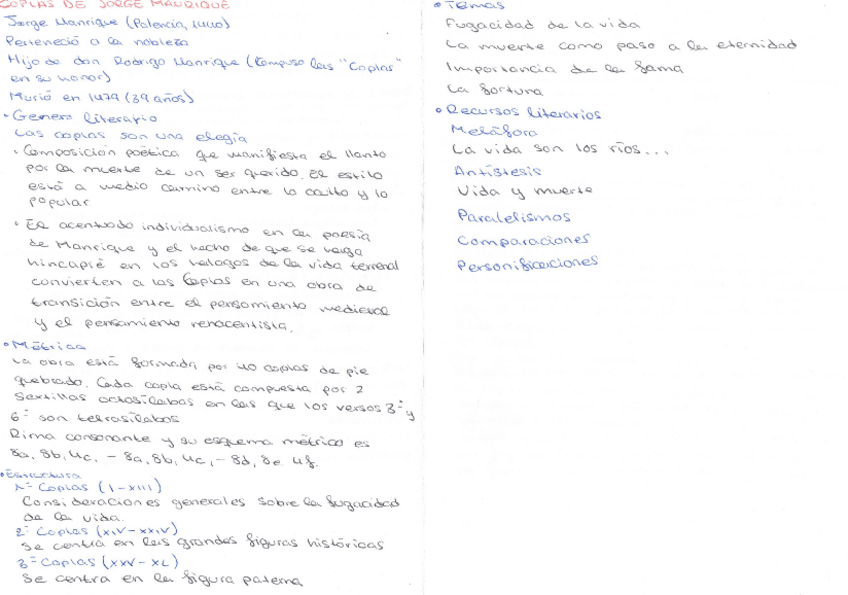 COPLAS DE JORGE MANRIQUE
Jorge Manrique (Palencia, 1440)
Perteneció a la nobleza
Hijo de don Rodrigo Manrique (Compuso las "Coplas"
en su honor)
Murió en 1479 (39 años)
• Genero literario
Las coplas son una elegía
• Composición poética que manifiesta el llanto
por la muerte de un ser querido. El estilo
está a medio camino entre lo culto y lo
popular
• El acentuado individualismo en la poesía
de Manrique y el hecho de que se haga
hincapié en los halagos de la vida terrenal
convierten a las Coplas en una obra de
transición entre el pensamiento medieval
y el pensamiento renacentista.
• Métrica
La obra está formada por 40 coplas de pie
quebrado. Cada copla está compuesta por 2
sextillas octosílabas en las que los versos 3º y
6º son tetrasílabos
Rima consonante y su esquema métrico es
8a, 8b, 4c, - 8a, 8b, 4c, - 8d, 8e 4f.
• Estructura
1º Coplas (I-XIII)
Consideraciones generales sobre la fugacidad
de la vida.
2º Coplas (XIV-XXIV)
Se centra en las grandes figuras históricas
3º Coplas (XXV-XL)
Se centra en la figura paterna
• Temas
Fugacidad de la vida
La muerte como paso a la eternidad
Importancia de la fama
La fortuna
• Recursos literarios
Metáfora
La vida son los ríos...
Antístesis
Vida y muerte
Paralelismos
Comparaciones
Personificaciones